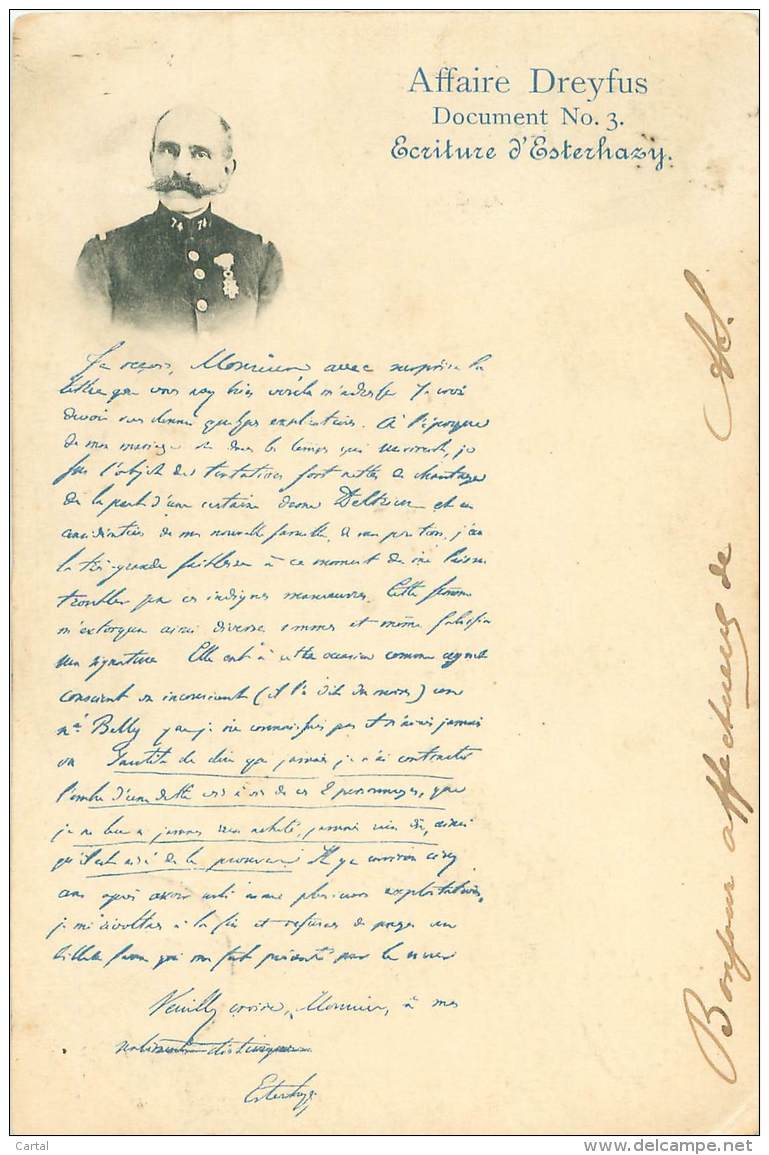 Affaire Dreyfus
Document No. 3.
Ecriture d'Esterhazy.
74 74
Je reçois, Monsieur, avec surprise la
lettre que vous avez bien voulu m'adresser Je crois
devoir vous donner quelques explications. A l'époque
de mon mariage et dans les temps qui suivirent, je
fus l'objet de tentatives fort nettes de chantage
de la part d'une certaine dame et en
de ma nouvelle famille, de ma position, j'eus
la très grande faiblesse à ce moment de me laisser
troubler par ces indignes manoeuvres. Cette femme
m'extorqua ainsi diverses sommes et même falsifia
ma signature Elle eut à cette occasion comme agent
conscient ou inconscient (il l'a dit du moins) un
Mr Belly que je ne connaissais pas et n'avais jamais
vu Inutile de dire que jamais je n'ai contracté
l'ombre d'une dette vis à vis de ces 2 personnages, que
je ne leur ai jamais rien acheté, jamais rien dû, ainsi
qu'il est aisé de le prouver Il y a environ cinq
ans après avoir subi plusieurs exploitations,
je me révoltai à la fin et refusai de payer un
billet faux qui me fut présenté par le
Veuillez croire, Monsieur, à mes
sentiments distingués
Esterhazy
Bonjour affectueux de
Cartal
delcampe.net